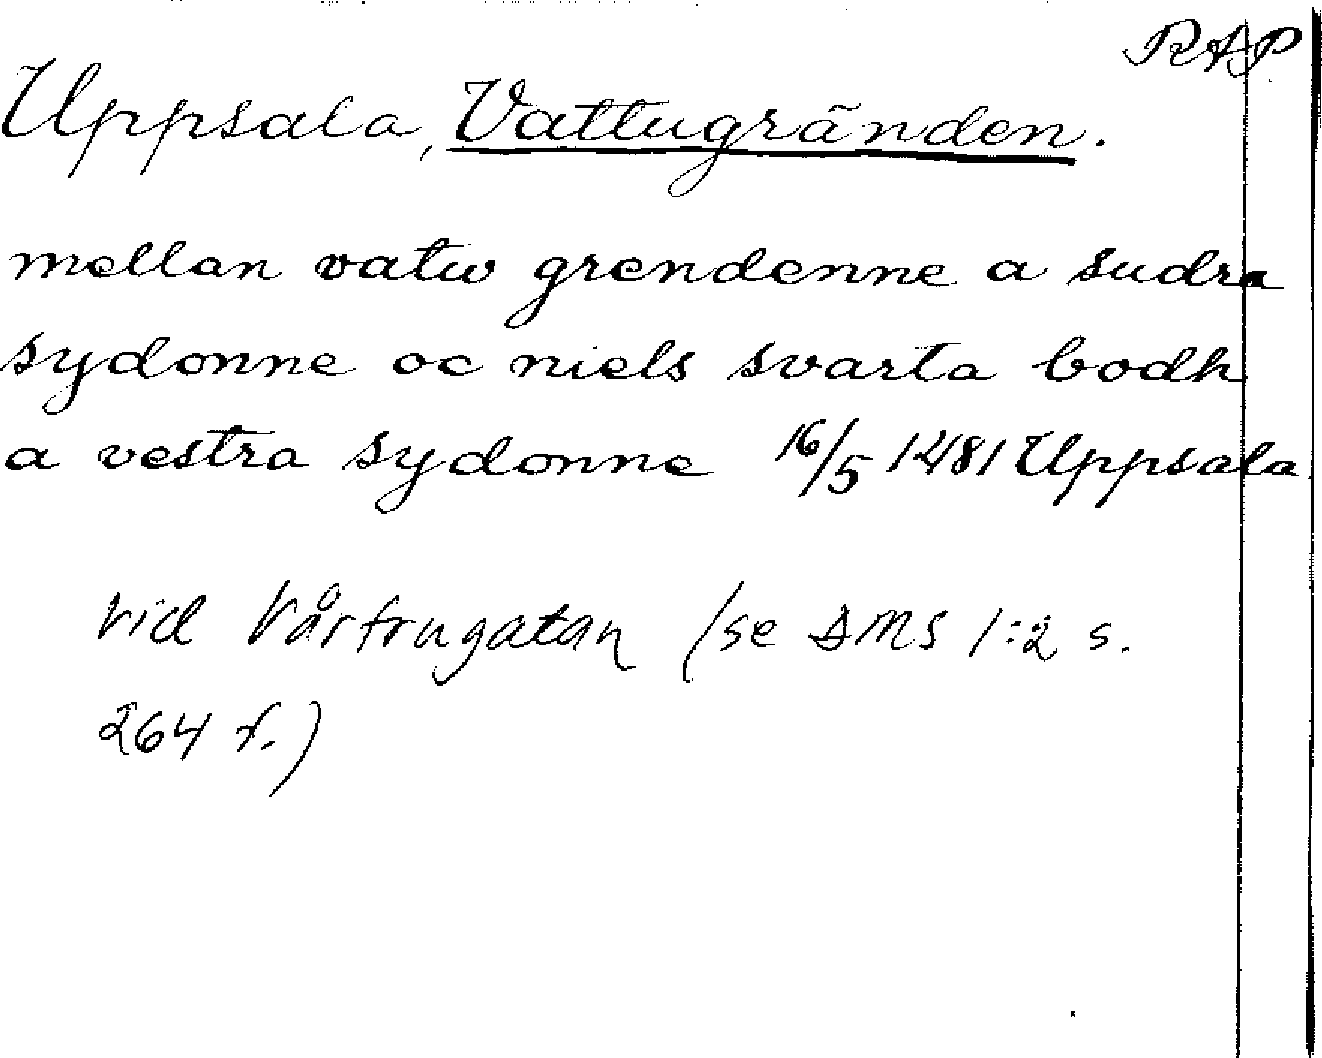 RAP.
Uppsala, Vattugränden.
mellan vatw grendenne a sudra
sydonne oc niels svarta bodh
a vestra sydonne 16/5 1481 Uppsala
vid Vårfrugatan (se DMS 1:2 s.
264 f.)